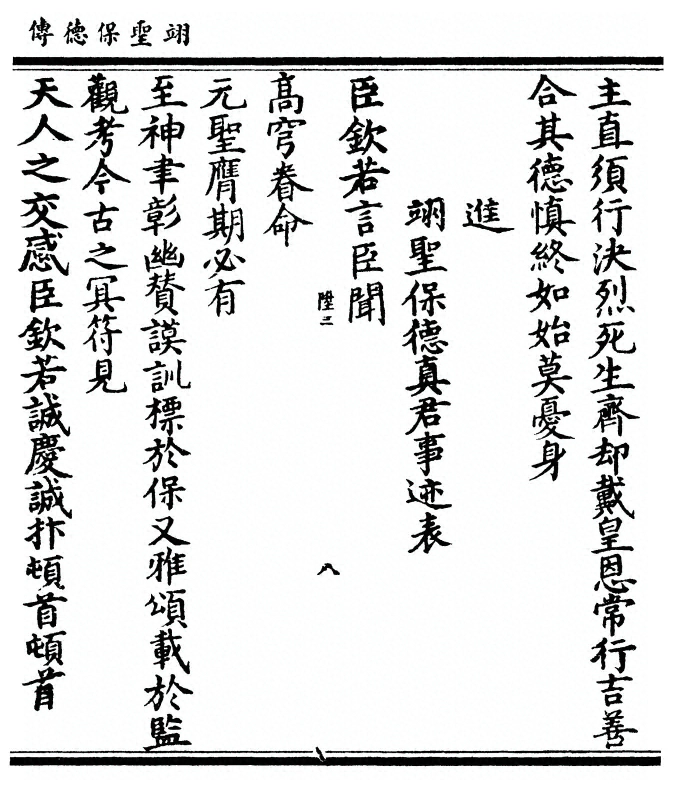 翊聖保德傳
主直須行決烈死生齊却戴皇恩常行吉善
合其德慎終如始莫憂身
進
翊聖保德真君事迹表
陞三
八
臣欽若言臣聞
高穹眷命
元聖膺期必有
至神聿彰幽贊謨訓標於保乂雅頌載於監
觀考今古之冥符見
天人之交感臣欽若誠慶誠抃頓首頓首